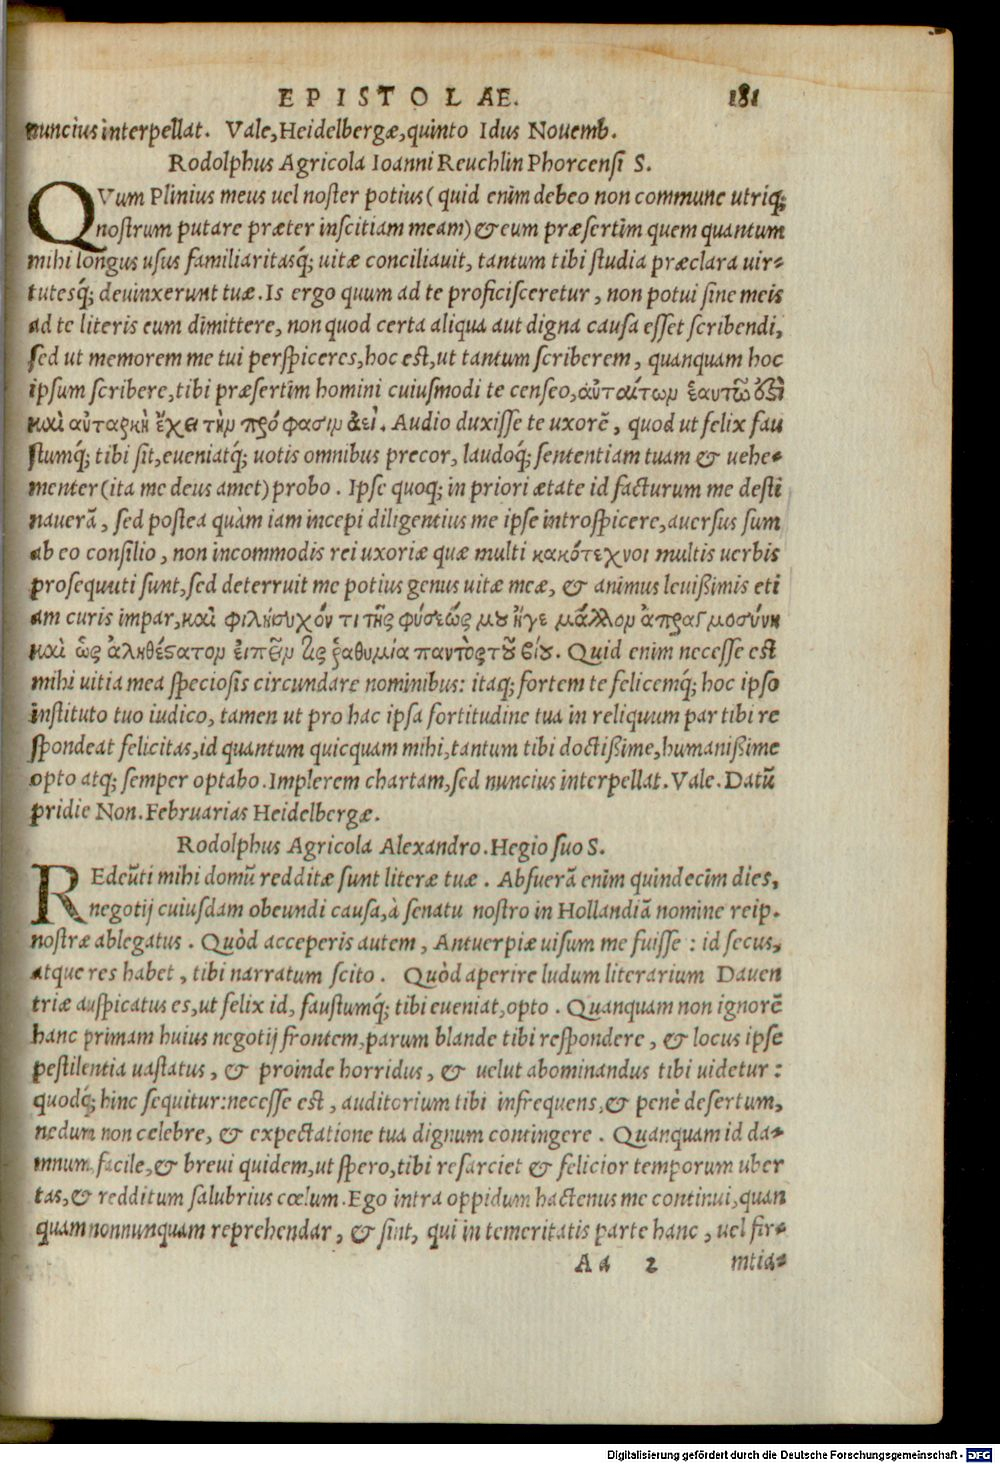 EPISTOLAE. 181
nuncius interpellat. Vale, Heidelbergæ, quinto Idus Nouemb.
Rodolphus Agricola Ioanni Reuchlin Phorcensi S.
QVum Plinius meus uel noster potius ( quid enim debeo non commune utriq;
nostrum putare præter inscitiam meam) & eum præsertim quem quantum
mihi longus usus familiaritasq́; uitæ conciliauit, tantum tibi studia præclara uir-
tutesq́; deuinxerunt tuæ. Is ergo quum ad te proficisceretur, non potui sine meis
ad te literis eum dimittere, non quod certa aliqua aut digna causa esset scribendi,
sed ut memorem me tui perspiceres, hoc est, ut tantum scriberem, quanquam hoc
ipsum scribere, tibi præsertim homini cuiusmodi te censeo,
καὶ αὐταρκῆ ἔχει τὴν πρόφασιν ἀεί. Audio duxisse te uxorē, quod ut felix fau
stumq́; tibi sit, eueniatq́; uotis omnibus precor, laudoq́; sententiam tuam & uehe-
menter (ita me deus amet) probo. Ipse quoq; in priori ætate id facturum me desti
nauerā, sed postea quàm iam incepi diligentius me ipse introspicere, auersus sum
ab eo consilio, non incommodis rei uxoriæ quæ multi κακότεχνοι multis uerbis
prosequuti sunt, sed deterruit me potius genus uitæ meæ, & animus leuißimis eti
am curis impar, καὶ φιλήσυχόν τι τῆς φύσεώς μου ἤγε μᾶλλον ἀπραγμοσύνη
καὶ ὡς ἀληθέστατον εἰπεῖν ἡ ῥαθυμία παντὸς τοῦ βίου. Quid enim necesse est
mihi uitia mea speciosis circundare nominibus: itaq; fortem te felicemq́; hoc ipso
instituto tuo iudico, tamen ut pro hac ipsa fortitudine tua in reliquum par tibi re
spondeat felicitas, id quantum quicquam mihi, tantum tibi doctißime, humanißime
opto atq; semper optabo. Implerem chartam, sed nuncius interpellat. Vale. Datū
pridie Non. Februarias Heidelbergæ.
Rodolphus Agricola Alexandro. Hegio suo S.
REdeūti mihi domū redditæ sunt literæ tuæ. Abfuerā enim quindecim dies,
negotij cuiusdam obeundi causa, à senatu nostro in Hollandiā nomine reip.
nostræ ablegatus. Quòd acceperis autem, Antuerpiæ uisum me fuisse: id secus,
atque res habet, tibi narratum scito. Quòd aperire ludum literarium Dauen
triæ auspicatus es, ut felix id, faustumq́; tibi eueniat, opto. Quanquam non ignorē
hanc primam huius negotij frontem, parum blande tibi respondere, & locus ipse
pestilentia uastatus, & proinde horridus, & uelut abominandus tibi uidetur:
quodq́; hinc sequitur: necesse est, auditorium tibi infrequens, & penè desertum,
nedum non celebre, & expectatione tua dignum contingere. Quanquam id da-
mnum facile, & breui quidem, ut spero, tibi resarciet & felicior temporum uber
tas, & redditum salubrius cœlum. Ego intra oppidum hactenus me continui, quan
quam nonnunquam reprehendar, & sint, qui in temeritatis parte hanc, uel fir-
Aa 2 mtia-
Digitalisierung gefördert durch die Deutsche Forschungsgemeinschaft - DFG